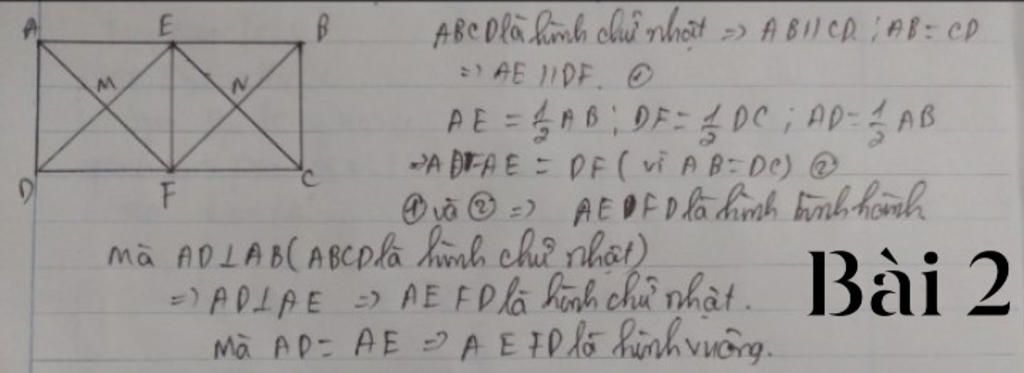 A E B
ABCD là hình chữ nhật => AB // CD ; AB = CD
M N
=> AE // DF. ①
AE = 1/2 AB ; DF = 1/2 DC ; AD = 1/2 AB
=> AE = DF ( vì AB = DC) ②
D F C
① và ② => AEFD là hình bình hành
mà AD ⊥ AB ( ABCD là hình chữ nhật)
=> AD ⊥ AE => AEFD là hình chữ nhật.
Mà AD = AE => AEFD là hình vuông.
Bài 2